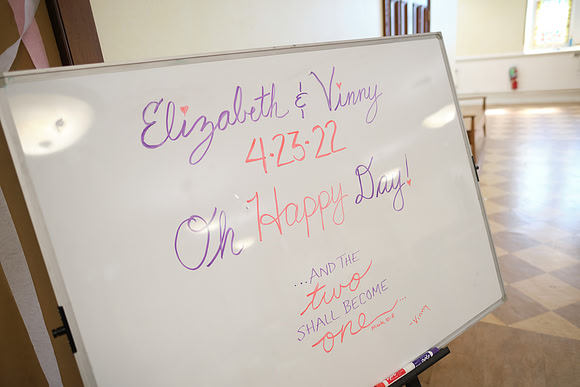 Elizabeth & Vinny
4·23·22
Oh Happy Day!
...AND THE
two
SHALL BECOME
one...
-Vinny